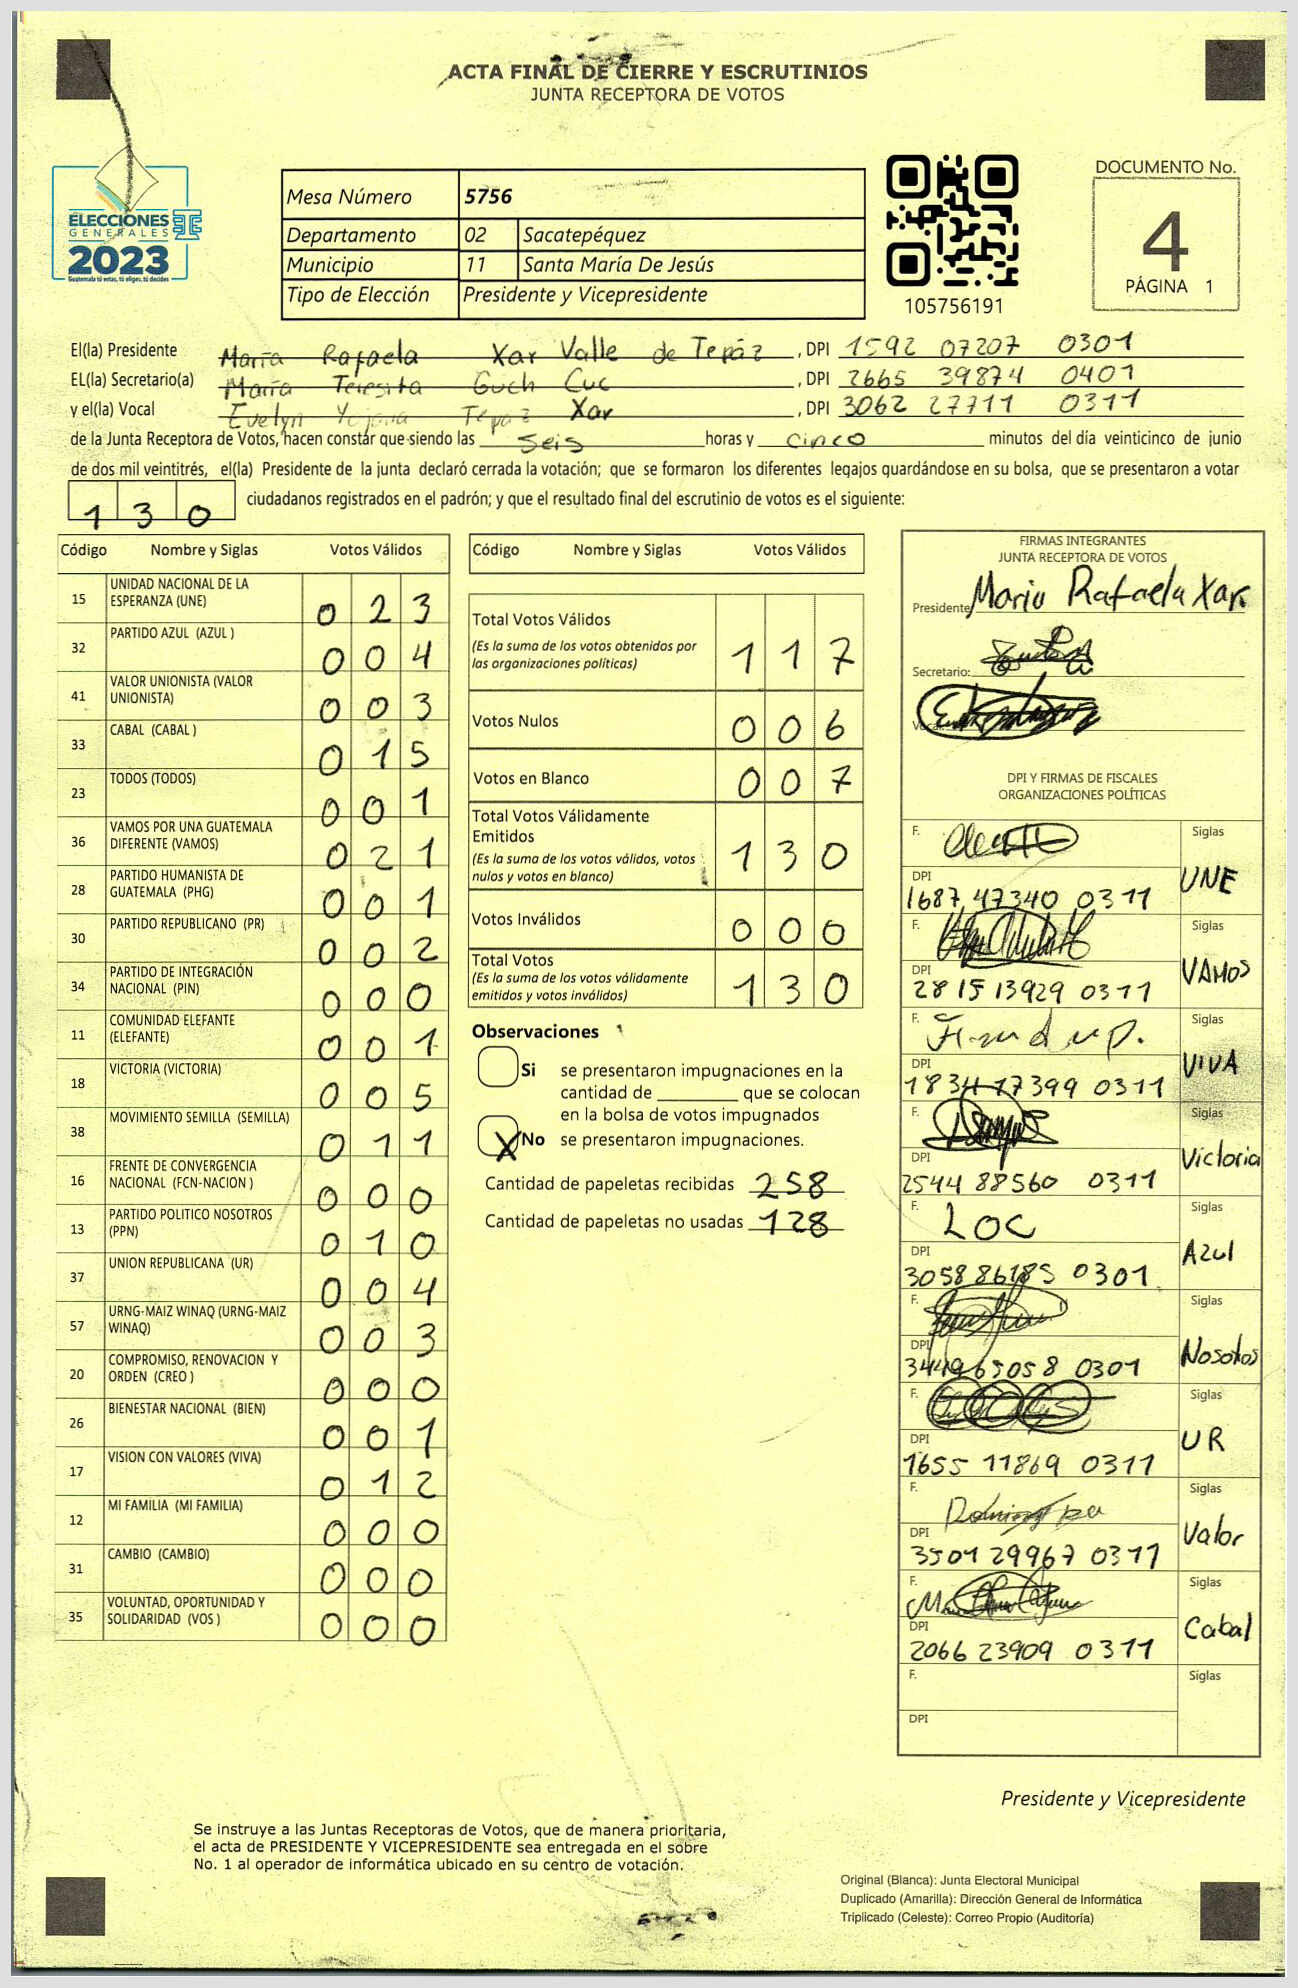 ACTA FINAL DE CIERRE Y ESCRUTINIOS
JUNTA RECEPTORA DE VOTOS
ELECCIONES
GENERALES
2023
Guatemala tú votas, tú eliges, tú decides
Mesa Número 5756
Departamento 02 Sacatepéquez
Municipio 11 Santa María De Jesús
Tipo de Elección Presidente y Vicepresidente
105756191
DOCUMENTO No.
4
PÁGINA 1
El(la) Presidente María Rafaela Xar Valle de Tepáz , DPI 1592 07207 0301
EL(la) Secretario(a) María Teresita Guch Cuc , DPI 2665 39874 0401
y el(la) Vocal Evelyn Yojana Tepaz Xar , DPI 3062 27711 0311
de la Junta Receptora de Votos, hacen constar que siendo las seis horas y cinco minutos del día veinticinco de junio
de dos mil veintitrés, el(la) Presidente de la junta declaró cerrada la votación; que se formaron los diferentes legajos quardándose en su bolsa, que se presentaron a votar
130 ciudadanos registrados en el padrón; y que el resultado final del escrutinio de votos es el siguiente:
Código Nombre y Siglas Votos Válidos
15 UNIDAD NACIONAL DE LA ESPERANZA (UNE) 023
32 PARTIDO AZUL (AZUL ) 004
41 VALOR UNIONISTA (VALOR UNIONISTA) 003
33 CABAL (CABAL ) 015
23 TODOS (TODOS) 001
36 VAMOS POR UNA GUATEMALA DIFERENTE (VAMOS) 021
28 PARTIDO HUMANISTA DE GUATEMALA (PHG) 001
30 PARTIDO REPUBLICANO (PR) 002
34 PARTIDO DE INTEGRACIÓN NACIONAL (PIN) 000
11 COMUNIDAD ELEFANTE (ELEFANTE) 001
18 VICTORIA (VICTORIA) 005
38 MOVIMIENTO SEMILLA (SEMILLA) 011
16 FRENTE DE CONVERGENCIA NACIONAL (FCN-NACION ) 000
13 PARTIDO POLITICO NOSOTROS (PPN) 010
37 UNION REPUBLICANA (UR) 004
57 URNG-MAIZ WINAQ (URNG-MAIZ WINAQ) 003
20 COMPROMISO, RENOVACION Y ORDEN (CREO ) 000
26 BIENESTAR NACIONAL (BIEN) 001
17 VISION CON VALORES (VIVA) 012
12 MI FAMILIA (MI FAMILIA) 000
31 CAMBIO (CAMBIO) 000
35 VOLUNTAD, OPORTUNIDAD Y SOLIDARIDAD (VOS ) 000
Código Nombre y Siglas Votos Válidos
Total Votos Válidos 117
(Es la suma de los votos obtenidos por
las organizaciones políticas)
Votos Nulos 006
Votos en Blanco 007
Total Votos Válidamente
Emitidos 130
(Es la suma de los votos válidos, votos
nulos y votos en blanco)
Votos Inválidos 000
Total Votos 130
(Es la suma de los votos válidamente
emitidos y votos inválidos)
Observaciones
Si se presentaron impugnaciones en la
cantidad de ________ que se colocan
en la bolsa de votos impugnados
X No se presentaron impugnaciones.
Cantidad de papeletas recibidas 258
Cantidad de papeletas no usadas 128
FIRMAS INTEGRANTES
JUNTA RECEPTORA DE VOTOS
Presidente Maria Rafaela Xar
Secretario:
Vocal:
DPI Y FIRMAS DE FISCALES
ORGANIZACIONES POLÍTICAS
F. Siglas
UNE
DPI
1687 47340 0311
F. Siglas
VAMOS
DPI
2815 13929 0311
F. Siglas
VIVA
DPI
1834 17399 0311
F. Siglas
Victoria
DPI
2544 88560 0311
F. LOC Siglas
Azul
DPI
3058 86185 0301
F. Siglas
Nosotros
DPI
3449 65058 0301
F. Siglas
UR
DPI
1655 11869 0311
F. Siglas
Valor
DPI
3501 29967 0311
F. Siglas
Cabal
DPI
2066 23909 0311
F. Siglas
DPI
Presidente y Vicepresidente
Se instruye a las Juntas Receptoras de Votos, que de manera prioritaria,
el acta de PRESIDENTE Y VICEPRESIDENTE sea entregada en el sobre
No. 1 al operador de informática ubicado en su centro de votación.
Original (Blanca): Junta Electoral Municipal
Duplicado (Amarilla): Dirección General de Informática
Triplicado (Celeste): Correo Propio (Auditoría)